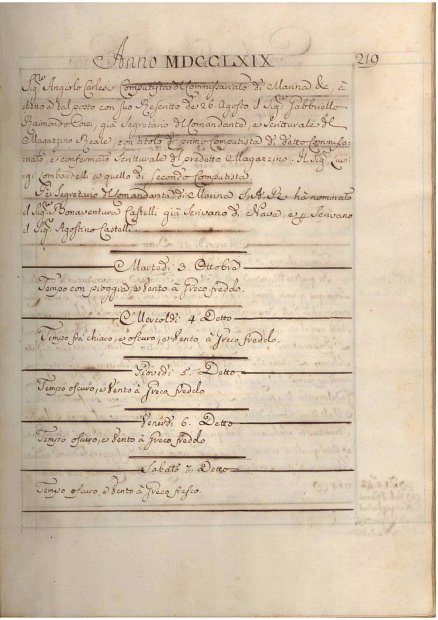 Anno MDCCLXIX 219
Sig.e Angiolo Carlesi Computista di Commissariato di Marina &c, à
eletto à tal posto con suo Rescritto de 26 Agosto il Sig.e Gabbriello
Raimondo già Segretario di Comandanta, e Scritturale del
Magazzino Reale, con titolo di primo Computista di detto Commissa=
riato, e confermato Scritturale del predetto Magazzino. Il Sig.e Lui=
gi Lombardelli a quello di secondo Computista.
Per Segretario di Comandanta di Marina S. A. R. ha nominato
il Sig.e Bonaventura Castelli già Scrivano di Nave, e p Scrivano
il Sig.e Agostino Castelli.
Martedì 3. Ottobre
Tempo con pioggia, e Vento à Greco freddo.
Mercoldì 4 Detto
Tempo frà chiaro, e oscuro, e Vento à Greco freddo.
Giovedì 5. Detto
Tempo oscuro, e Vento à Greco freddo
Venerdì 6. Detto
Tempo oscuro, e Vento à Greco freddo
Sabato 7. Detto
Tempo oscuro, e Vento à Greco fresco.